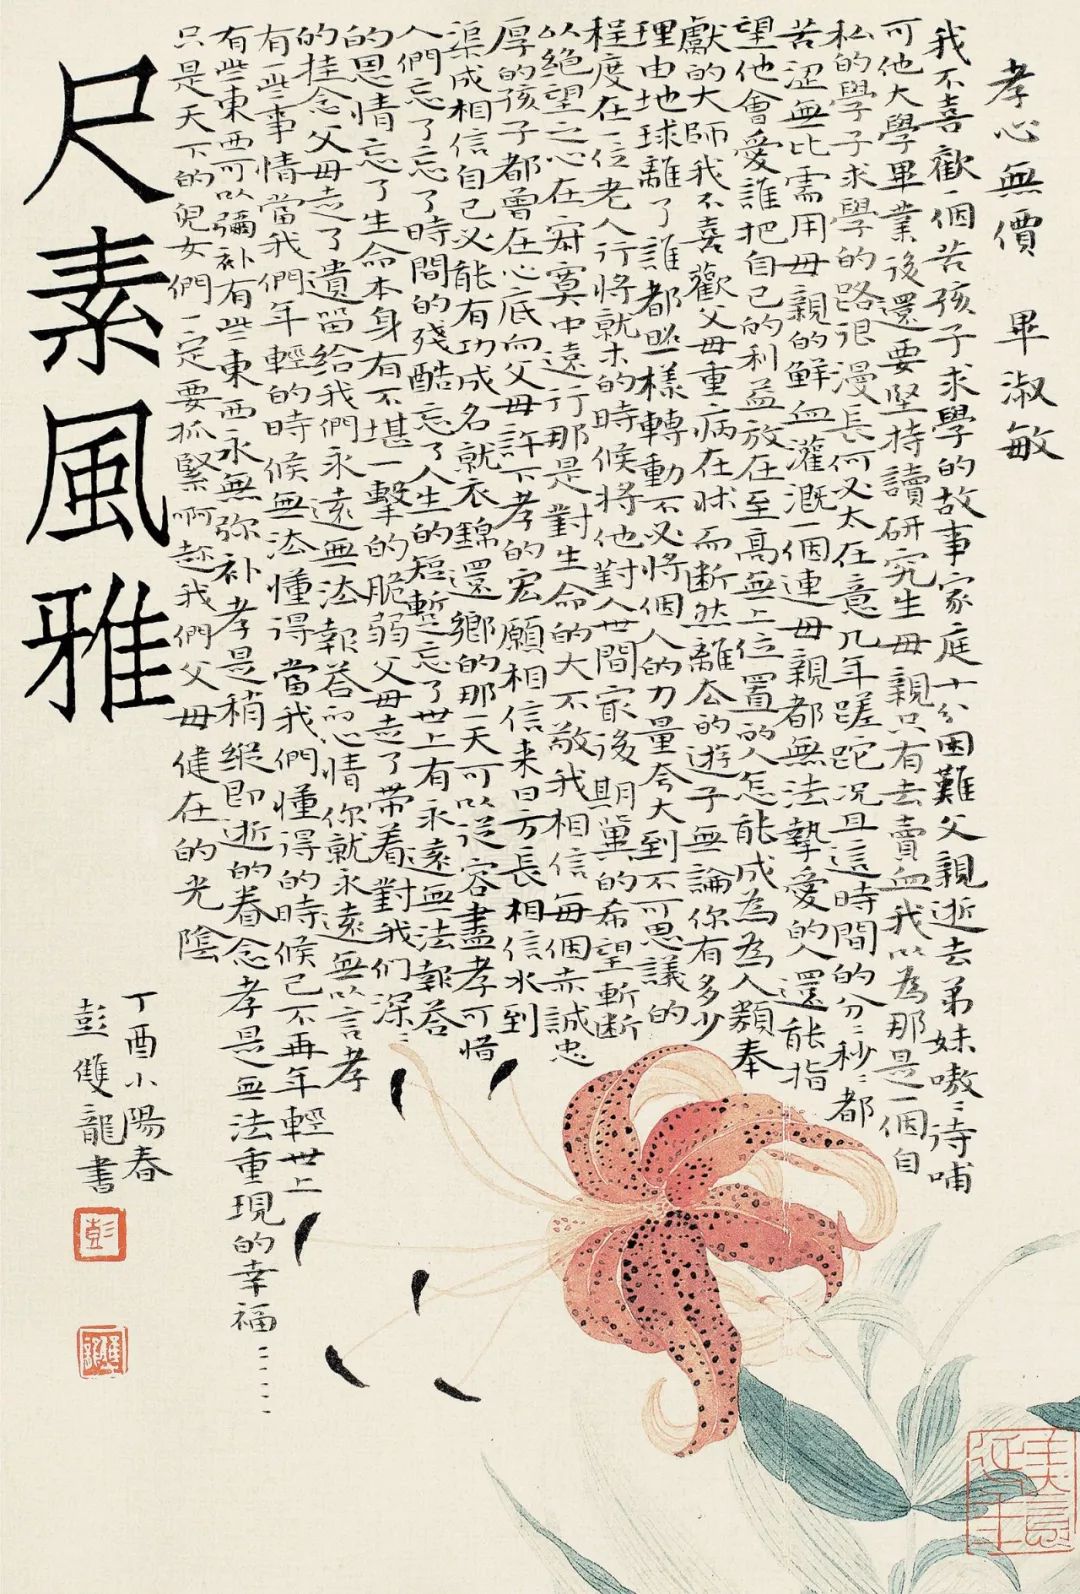 孝心無價 畢淑敏
我不喜歡一個苦孩子求學的故事家庭十分困難父親逝去弟妹嗷〻待哺
可他大學畢業後還要堅持讀研究生母親只有去賣血我以為那是一個自
私的學子求學的路很漫長何必太在意几年蹉跎况且這時間的分〻秒〻都
苦澀無比需用母親的鮮血灌溉一個連母親都無法摯愛的人還能指
望他會愛誰把自己的利益放在至高無上位置的人怎能成為為人類奉
獻的大師我不喜歡父母重病在牀而断然離去的遊子無論你有多少
理由地球離了誰都照樣轉動不必將個人的力量夸大到不可思議的
程度在一位老人行將就木的時候將他對人世間最後期冀的希望斬断
以絕望之心在寂寞中遠行那是對生命的大不敬我相信每個赤誠忠
厚的孩子都曾在心底向父母許下孝的宏願相信来日方長相信水到
渠成相信自己必能有功成名就衣錦還鄉的那一天可以從容盡孝可惜
人們忘了忘了時間的殘酷忘了人生的短暫忘了世上有永遠無法報答
的恩情忘了生命本身有不堪一擊的脆弱父母走了带着對我们深〻
的挂念父母走了遺留給我們永遠無法報答的心情你就永遠無以言孝
有一些事情當我們年輕的時候無法懂得當我們懂得的時候已不再年輕世上
有些東西可以彌补有些東西永無弥补孝是稍縱即逝的眷念孝是無法重現的幸福……
只是天下的兒女們一定要抓緊啊趁我們父母健在的光陰
尺素風雅
丁酉小陽春
彭雙龍書
彭
雙龍
美意延年